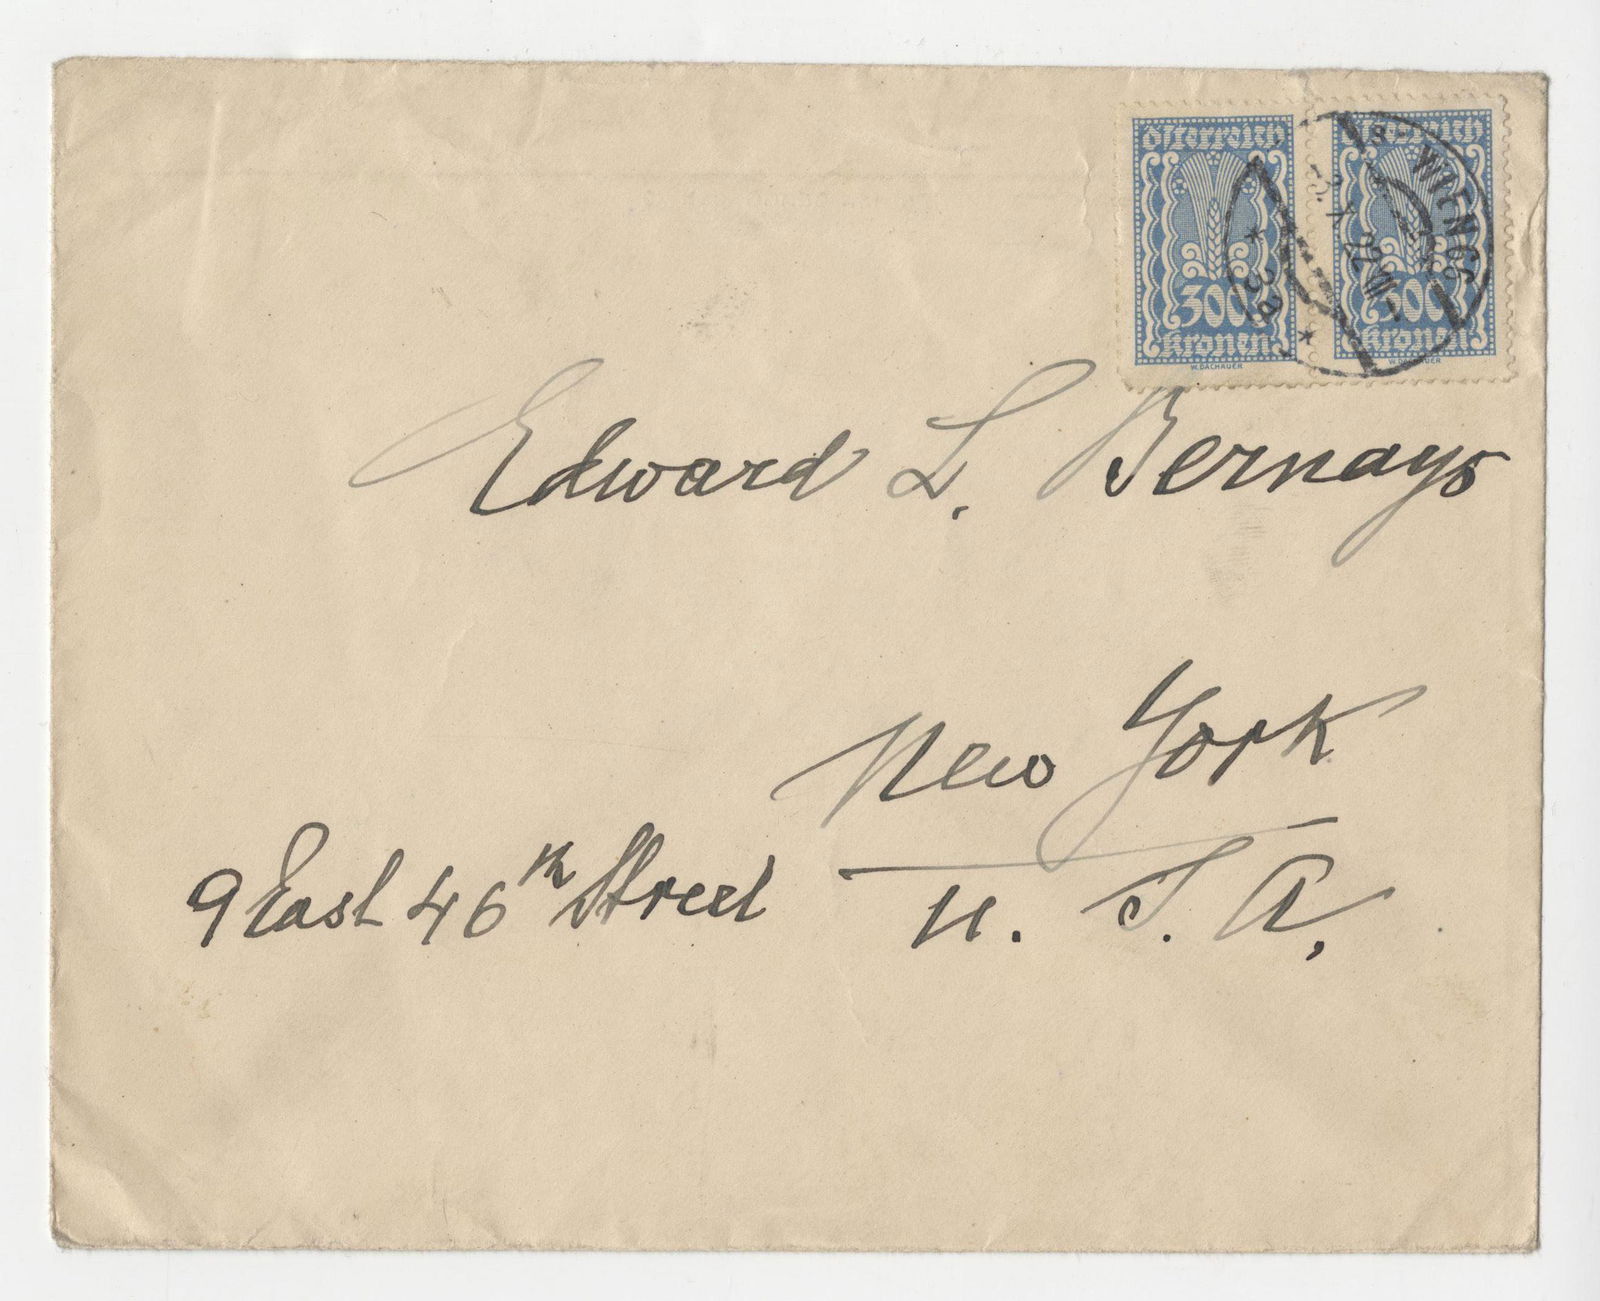 österreich
300
Kronen
W.DACHAUER
österreich
300
Kronen
W.DACHAUER
WIEN 66
22.
* 3a *
Edward L. Bernays
New York
9 East 46th Street
U. S. A.